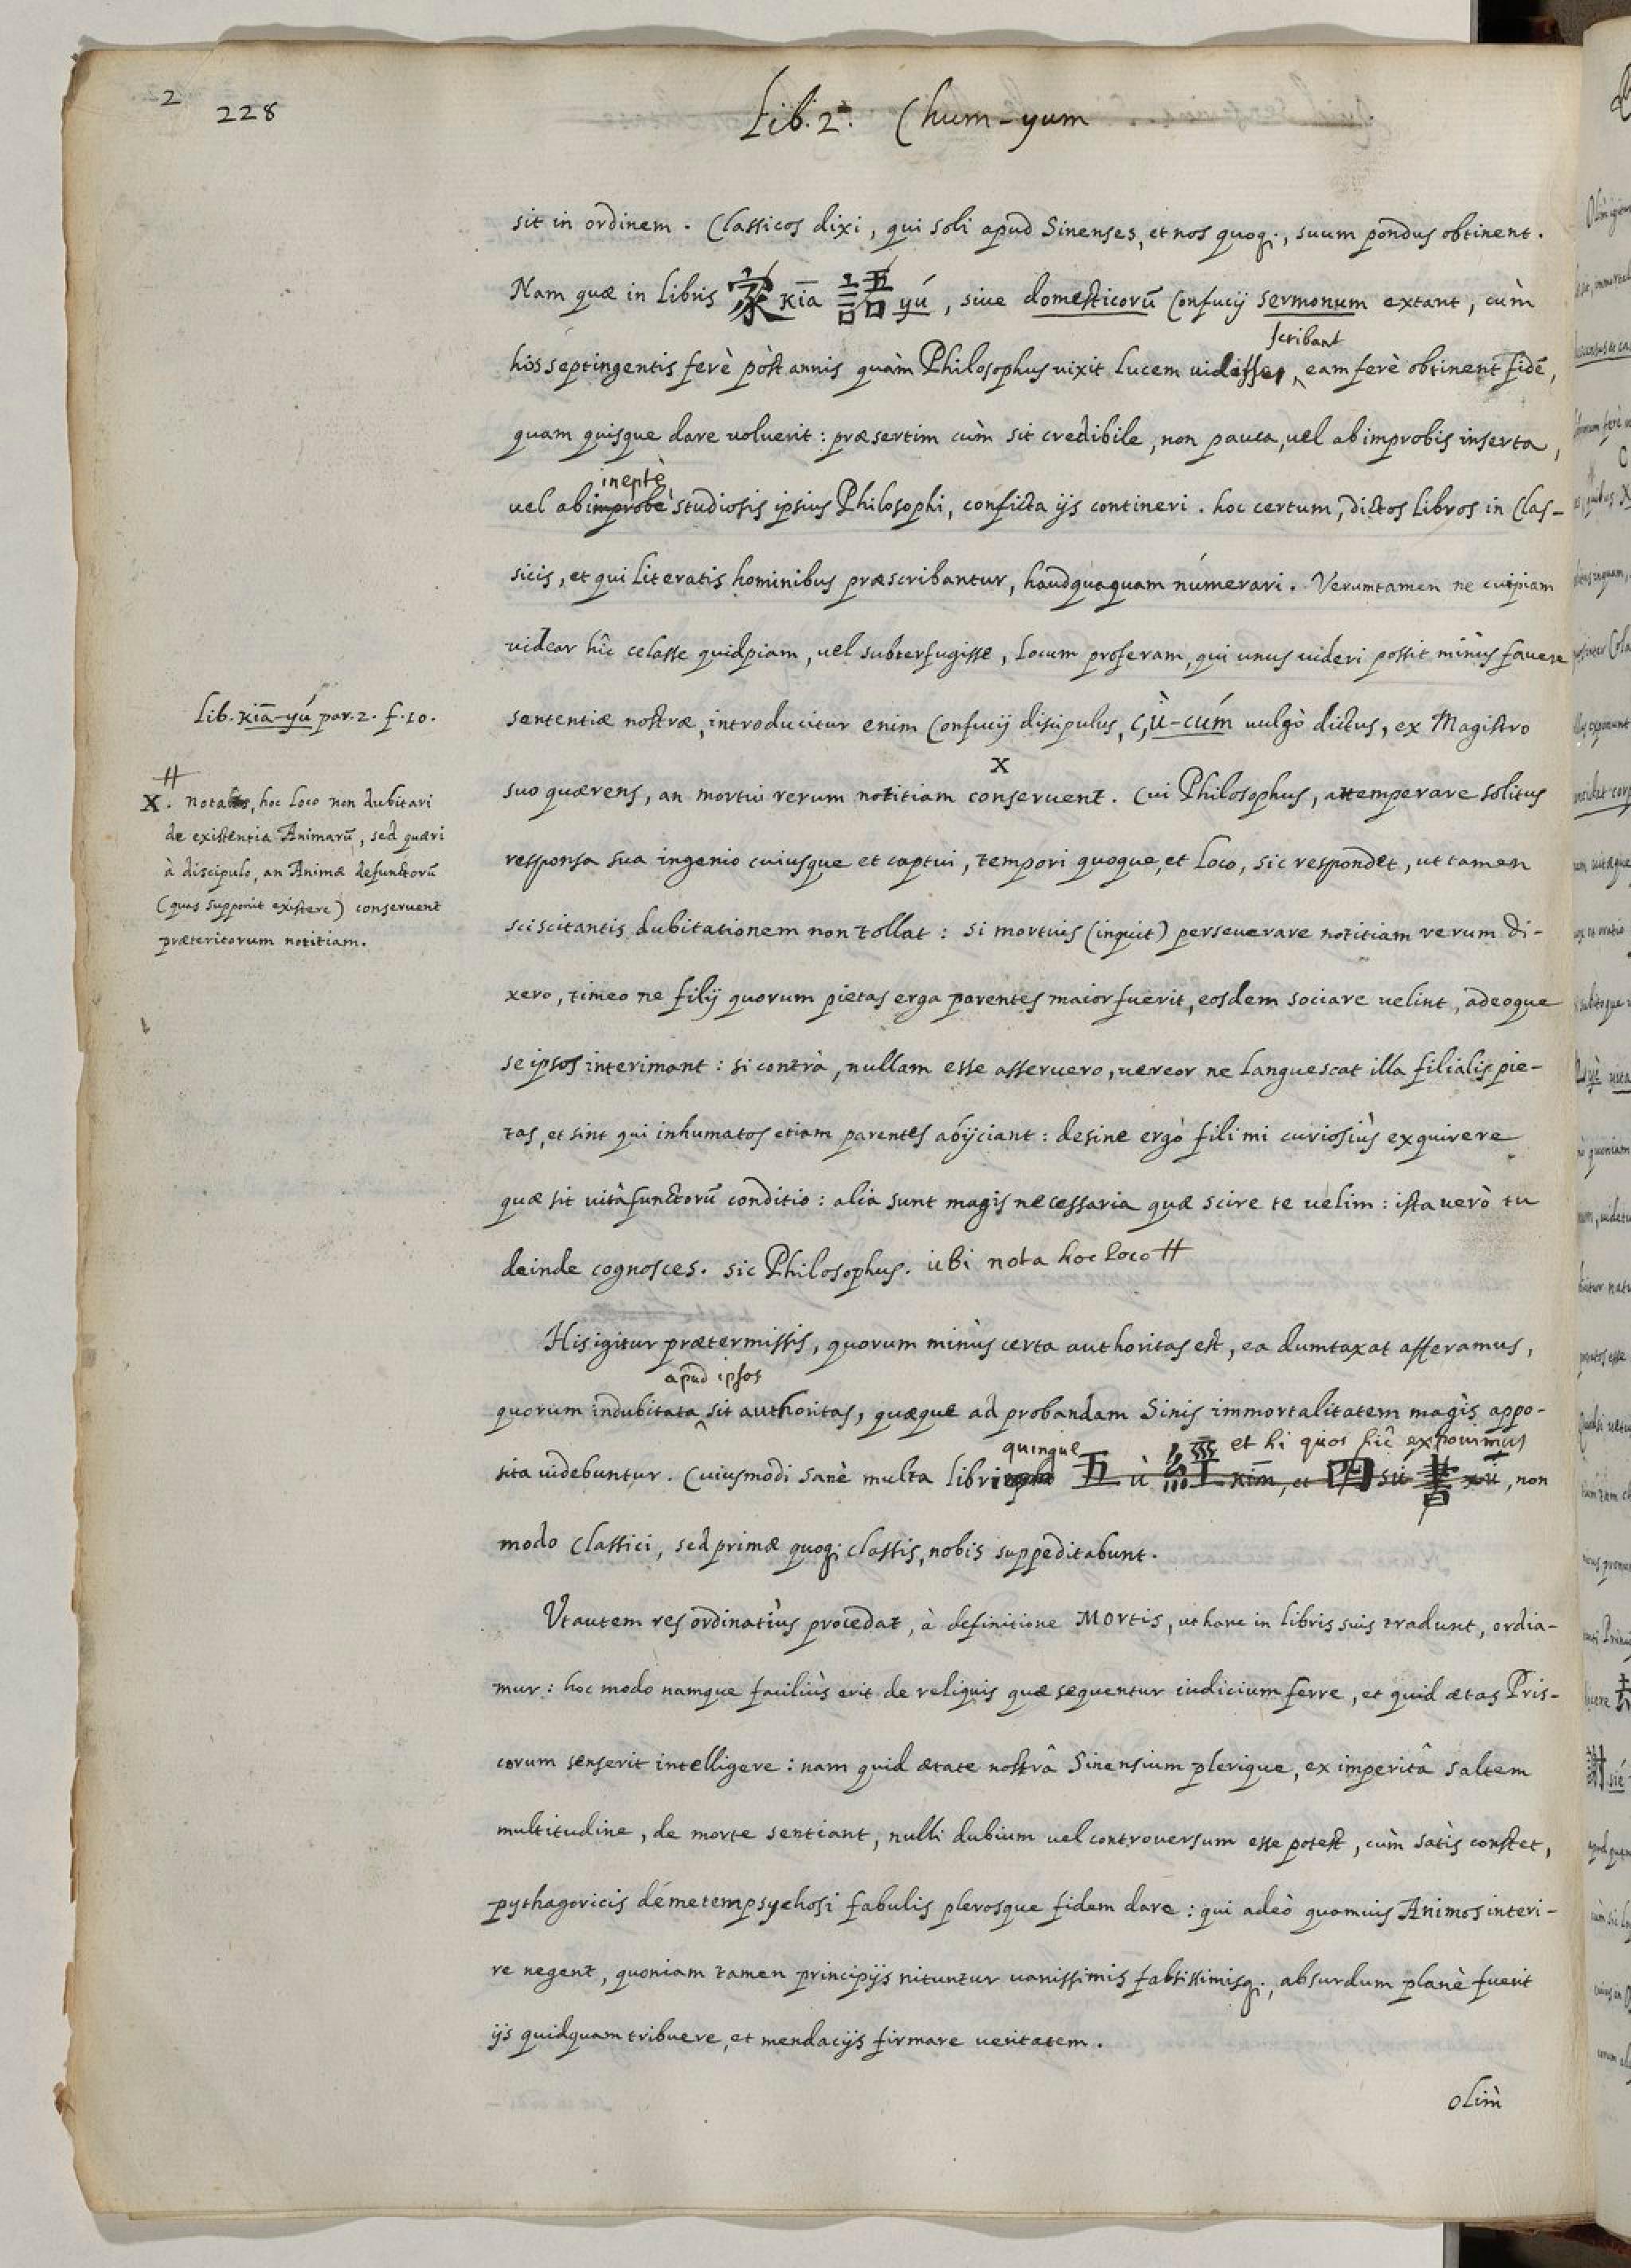 2
228
Lib. 2us. Chum-yum
sit in ordinem. Classicos dixi, qui soli apud Sinenses, et nos quoq;, suum pondus obtinent.
Nam quæ in Libris 家 kīa 語 yú, siue domesticorū Confucij sermonum extant, cùm
scribant
hos septingentis ferè pòst annis quàm Philosophus vixit Lucem vidisse, eam ferè obtinent fidē,
quam quisque dare uoluerit: præsertim cùm sit credibile, non pauca, uel ab improbis inserta,
ineptè
uel ab improbè studiosis ipsius Philosophi, conficta ijs contineri. hoc certum, dictos Libros in Clas-
sicis, et qui Literatis hominibus præscribantur, haudquaquam númerari. Verumtamen ne cuipiam
videar hîc celasse quidpiam, uel subterfugisse, Locum proferam, qui unus uideri possit minùs fauere
Lib. Kiā-yú par. 2. f. 10.
sententiæ nostræ, introducitur enim Confucij discipulus, Çù-cúm uulgò dictus, ex Magistro
X
suo quærens, an mortui rerum notitiam conseruent. Cui Philosophus, attemperare solitus
responsa sua ingenio cuiusque et captui, tempori quoque, et Loco, sic respondet, ut tamen
sciscitantis dubitationem non tollat: si mortuis (inquit) perseuerare notitiam rerum di-
xero, timeo ne filij quorum pietas erga parentes maior fuerit, eosdem sociare uelint, adeoque
se ipsos interimant: si contrà, nullam esse asseruero, uereor ne Languescat illa filialis pie-
tas, et sint qui inhumatos etiam parentes abijciant: desine ergò fili mi curiosiùs exquirere
quæ sit uitâ functorū conditio: alia sunt magis necessaria quæ scire te uelim: ista uerò tu
deinde cognosces. sic Philosophus. ubi nota hoc Loco #
#
X. notabis, hoc Loco non dubitari
de existentia Animarū, sed quæri
à discipulo, an Animæ defunctorū
(quas supponit existere) conseruent
præteritorum notitiam.
His igitur prætermissis, quorum minùs certa authoritas est, ea dumtaxat afferamus,
apud ipsos
quorum indubitata sit authoritas, quæque ad probandam Sinis immortalitatem magis appo-
quinque et hi quos hîc exponimus
sita uidebuntur. Cuiusmodi sanè multa libri 五 ù 經 kīm, et 四 sú 書 xū, non
modo Classici, sed primæ quoq; classis, nobis suppeditabunt.
Ut autem res ordinatiùs procedat, à definitione Mortis, ut hanc in Libris suis tradunt, ordia-
mur: hoc modo namque faciliùs erit de reliquis quæ sequentur iudicium ferre, et quid ætas Pris-
corum senserit intelligere: nam quid ætate nostrâ Sinensium plerique, ex imperitâ saltem
multitudine, de morte sentiant, nulli dubium uel controuersum esse potest, cùm satìs constet,
pythagoricis de metempsychosi fabulis plerosque fidem dare: qui adeò quamuis Animos interi-
re negent, quoniam tamen principijs nituntur uanissimis falsissimisq;, absurdum planè fuerit
ijs quidquam tribuere, et mendacijs firmare ueritatem.
olim